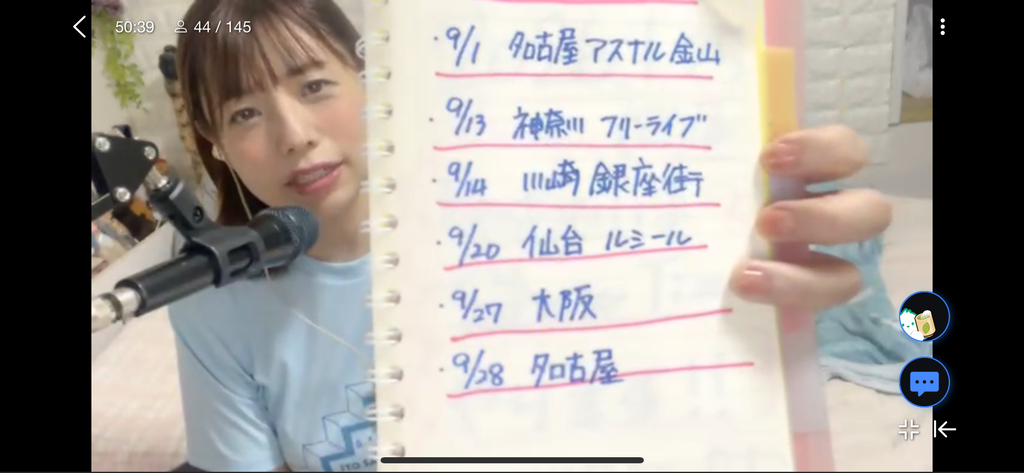 50:39 44 / 145
・9/1 名古屋 アスナル金山
・9/13 神奈川 フリーライブ
・9/14 川崎 銀座街
・9/20 仙台 ルミール
・9/27 大阪
・9/28 名古屋